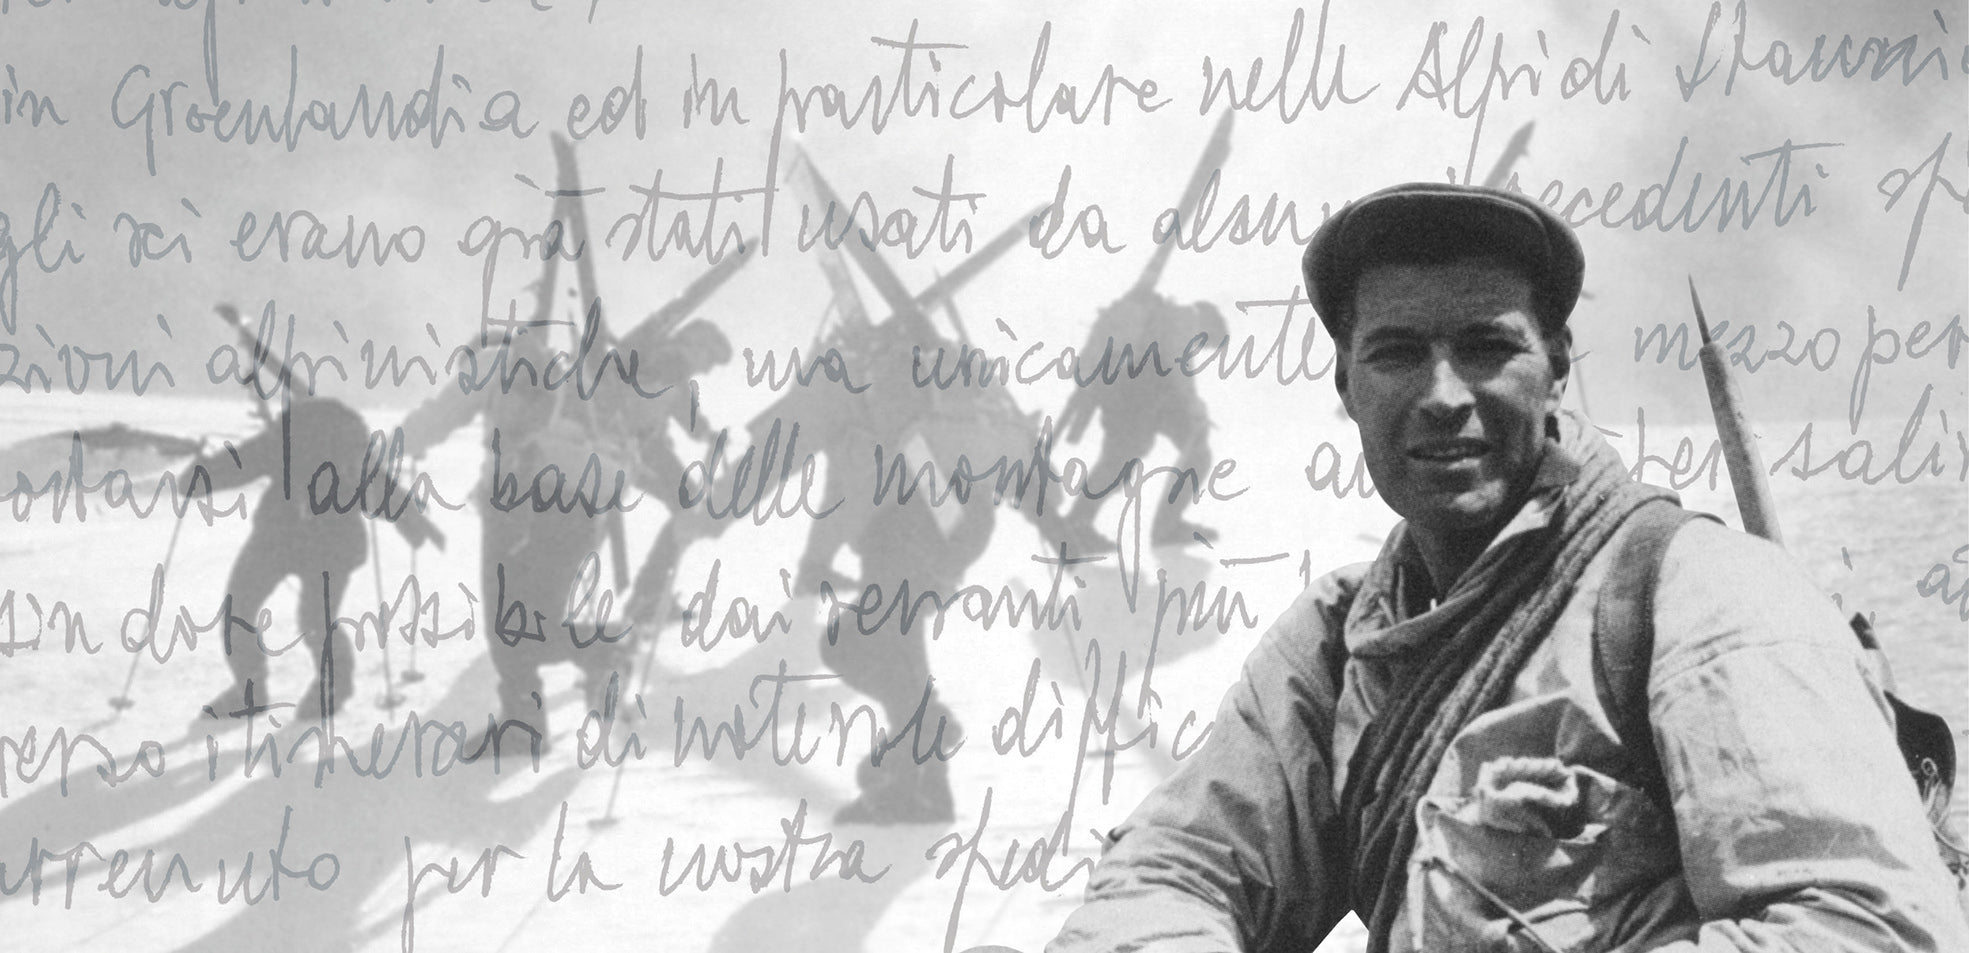 in Groenlandia ed in particolare nelle Alpi di Stauni
gli sci erano già stati usati da alcu recedenti spe
zioni alpinistiche, ma unicamente mezzo per
ortarsi alla base delle montagne per salir
sin dove possibile dai versanti più
verso itinerari di notevole diffic
avvenuto per la nostra spedi